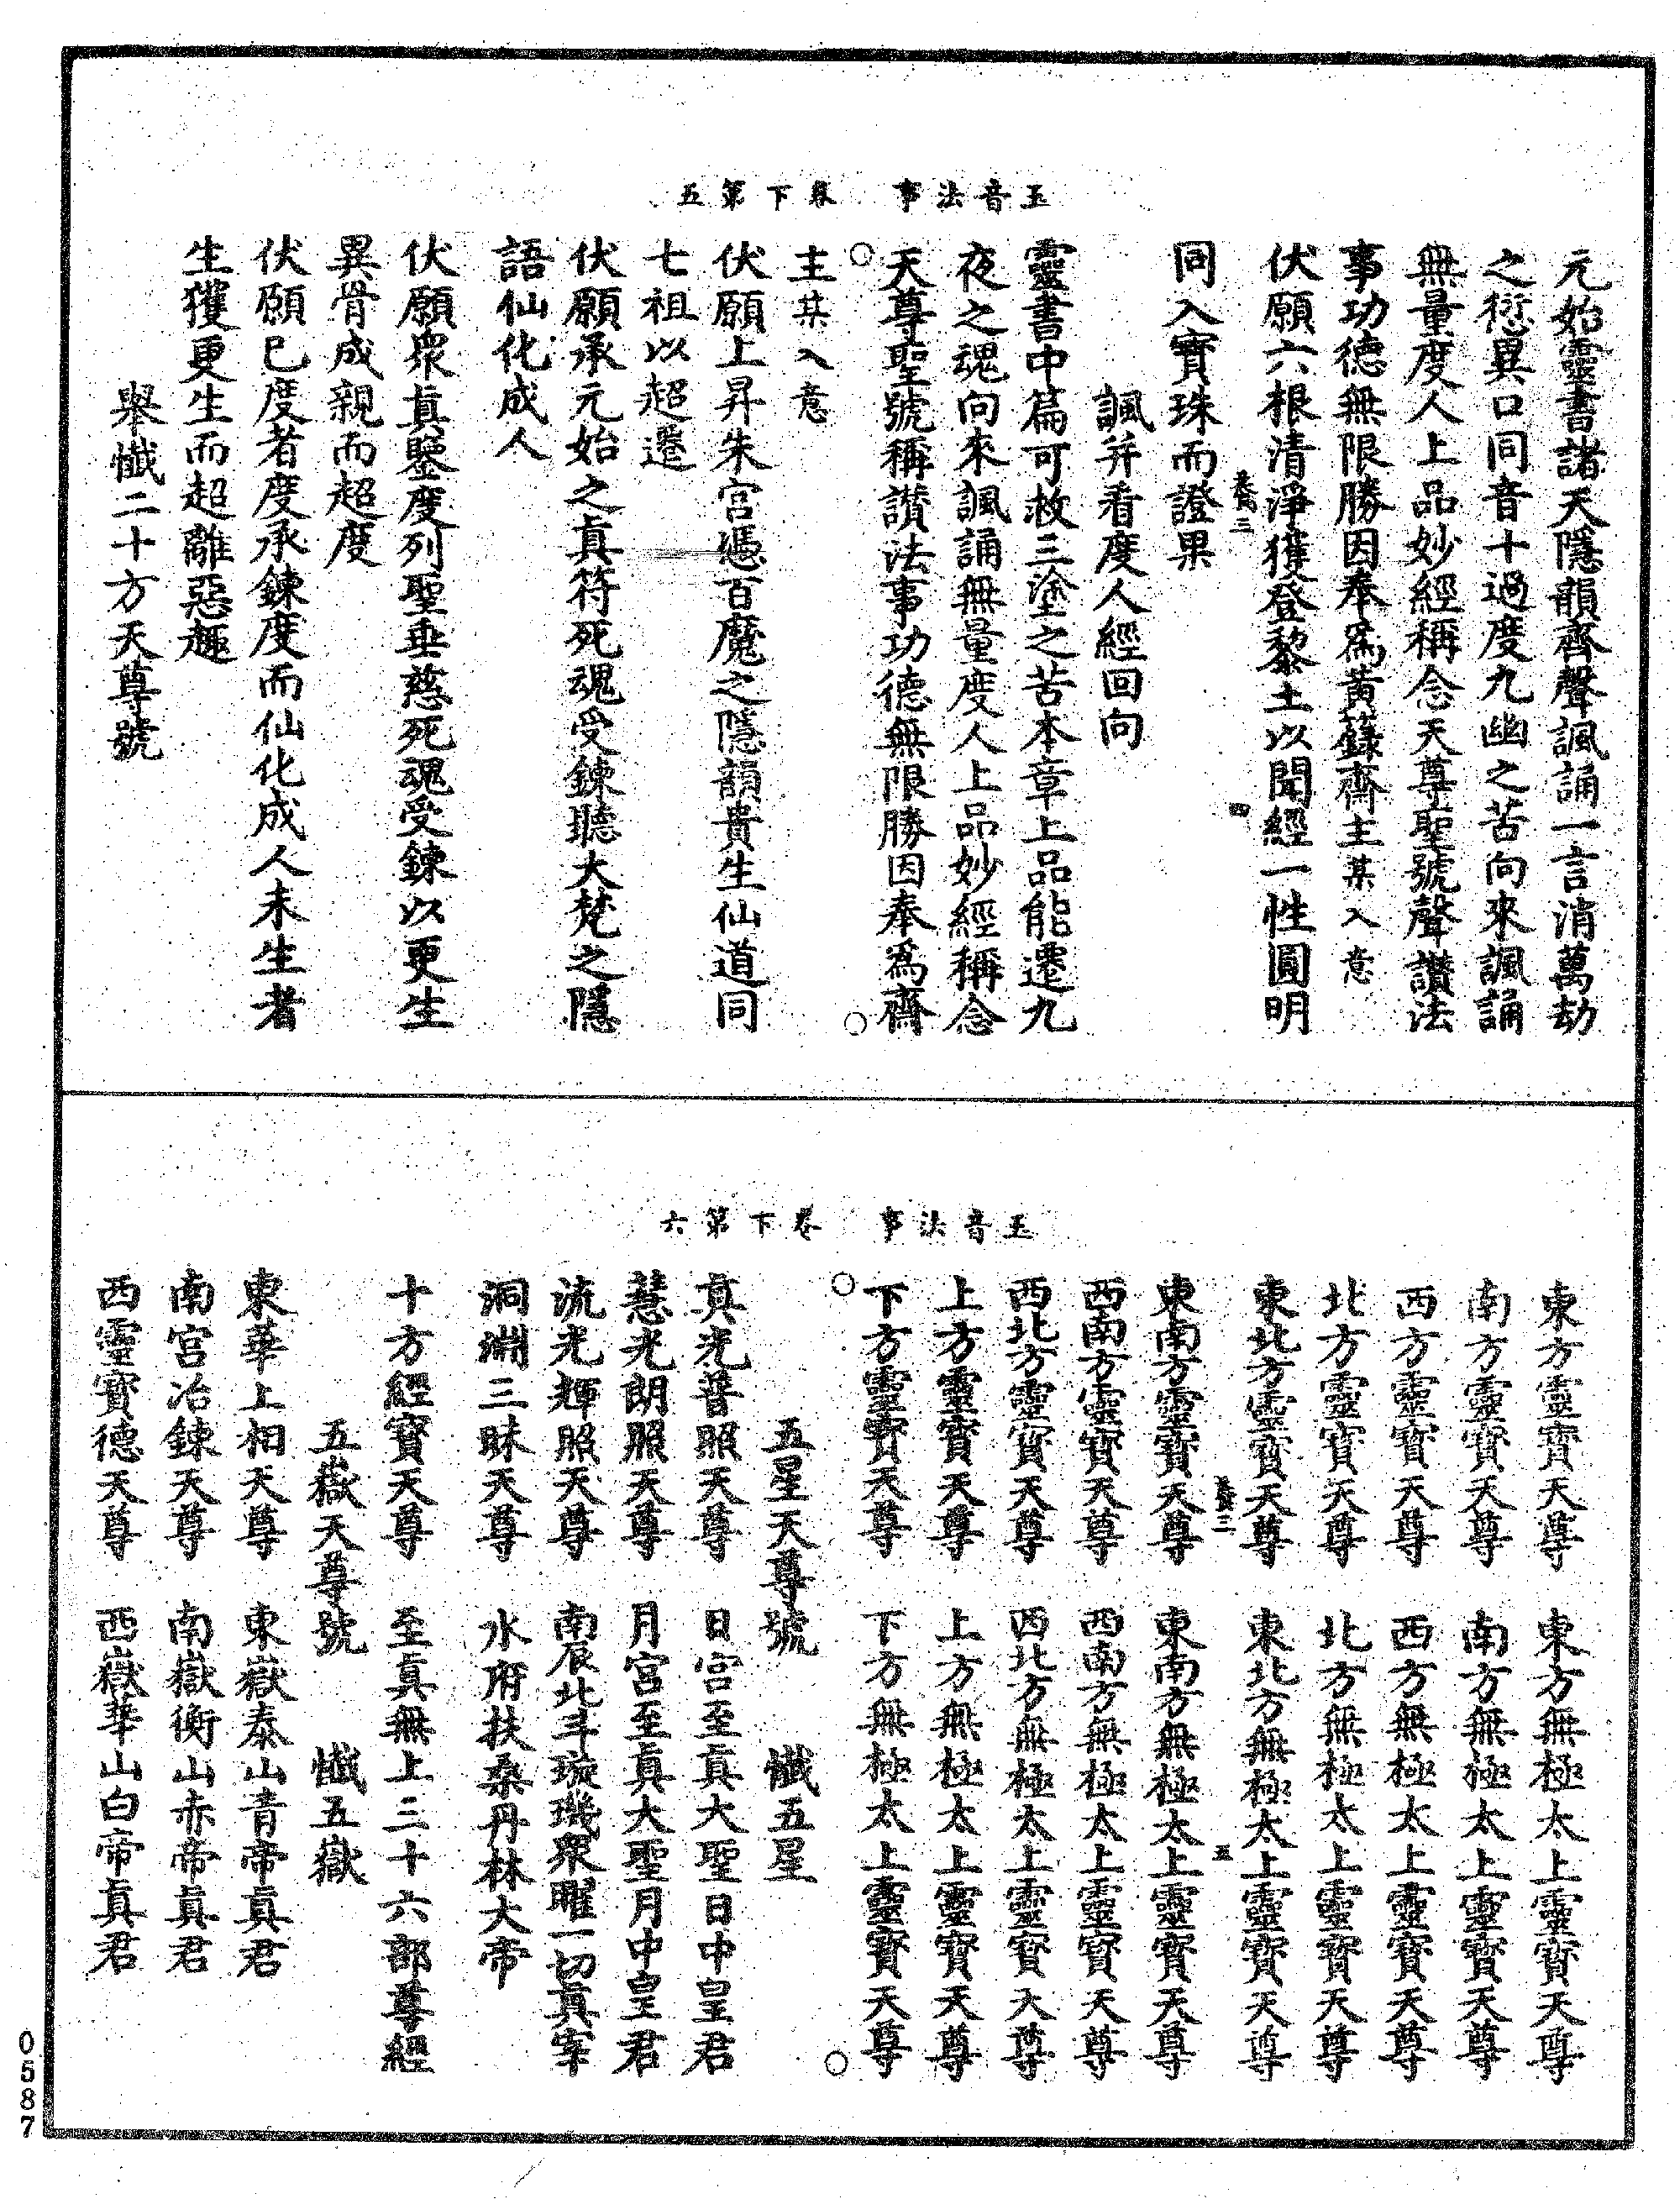 玉音法事　卷下第五
元始靈書諸天隱韻齊聲諷誦一言消萬劫
之愆異口同音十過度九幽之苦向來諷誦
無量度人上品妙經稱念天尊聖號聲讃法
事功德無限勝因奉爲黃籙齋主某入意
伏願六根清淨獲登黎土以聞經一性圓明
三　四
同入寳珠而證果
諷并看度人經回向
靈書中篇可救三塗之苦本章上品能遷九
夜之魂向來諷誦無量度人上品妙經稱念
天尊聖號稱讃法事功德無限勝因奉爲齋
主某入意
伏願上昇朱宮憑百魔之隱韻貴生仙道同
七祖以超遷
伏願承元始之眞符死魂受鍊聽大梵之隱
語仙化成人
伏願衆眞鑒度列聖垂慈死魂受鍊以更生
異骨成親而超度
伏願已度者度承鍊度而仙化成人未生者
生獲更生而超離惡趣
舉懺二十方天尊號
玉音法事　卷下第六
東方靈寳天尊　東方無極太上靈寳天尊
南方靈寳天尊　南方無極太上靈寳天尊
西方靈寳天尊　西方無極太上靈寳天尊
北方靈寳天尊　北方無極太上靈寳天尊
東北方靈寳天尊　東北方無極太上靈寳天尊
三　五
東南方靈寳天尊　東南方無極太上靈寳天尊
西南方靈寳天尊　西南方無極太上靈寳天尊
西北方靈寳天尊　西北方無極太上靈寳天尊
上方靈寳天尊　上方無極太上靈寳天尊
下方靈寳天尊　下方無極太上靈寳天尊
五星天尊號　懺五星
眞光普照天尊　日宮至眞大聖日中皇君
慧光朗照天尊　月宮至眞大聖月中皇君
流光輝照天尊　南辰北斗璇璣衆曜一切眞宰
洞淵三昧天尊　水府扶桑丹林大帝
十方經寳天尊　至眞無上三十六部尊經
五嶽天尊號　懺五嶽
東華上相天尊　東嶽泰山青帝眞君
南宮冶鍊天尊　南嶽衡山赤帝眞君
西靈寳德天尊　西嶽華山白帝眞君
0587